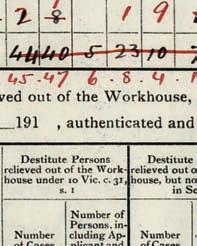 2 8 1 9
4440 5 23 10
45.47 6.8.4.
ved out of the Workhouse,
191 , authenticated and
Destitute Persons
relieved out of the Work-
house under 10 Vic. c. 31,
s. 1
Destitute
house, but no
in Se
Number
of Cases
Number of
Persons, in-
cluding Ap-
plicant and
Number
of Cases